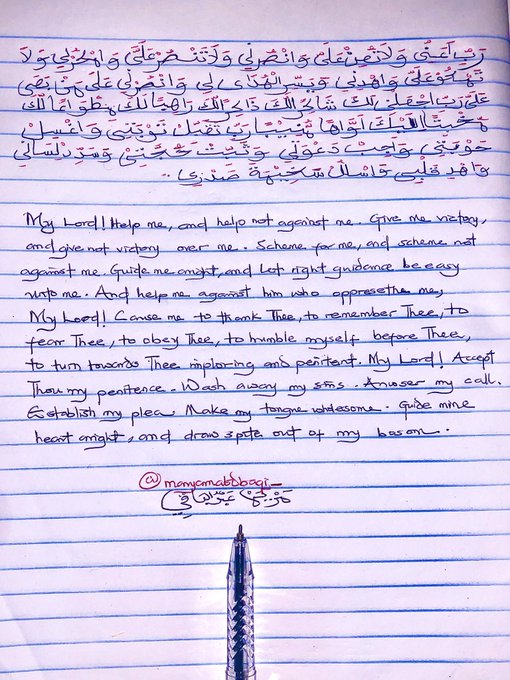 رَبِّ أَعِنِّي وَلَا تُعِنْ عَلَيَّ وَانْصُرْنِي وَلَا تَنْصُرْ عَلَيَّ وَامْكُرْ لِي وَلَا
تَمْكُرْ عَلَيَّ وَاهْدِنِي وَيَسِّرِ الْهُدَى لِي وَانْصُرْنِي عَلَى مَنْ بَغَى
عَلَيَّ رَبِّ اجْعَلْنِي لَكَ شَاكِرًا لَكَ ذَاكِرًا لَكَ رَاهِبًا لَكَ مِطْوَاعًا لَكَ
مُخْبِتًا إِلَيْكَ أَوَّاهًا مُنِيبًا رَبِّ تَقَبَّلْ تَوْبَتِي وَاغْسِلْ
حَوْبَتِي وَأَجِبْ دَعْوَتِي وَثَبِّتْ حُجَّتِي وَسَدِّدْ لِسَانِي
وَاهْدِ قَلْبِي وَاسْلُلْ سَخِيمَةَ صَدْرِي..
My Lord! Help me, and help not against me. Give me victory,
and give not victory over me. Scheme for me, and scheme not
against me. Guide me aright, and Let right guidance be easy
unto me. And help me against him who oppresethe me,
My Lord! Cause me to thank Thee, to remember Thee, to
fear Thee, to obey Thee, to humble myself before Thee,
to turn towards Thee imploring and penitent. My Lord! Accept
Thou my penitence. Wash away my sins. Answer my call.
Establish my plea Make my tongue wholesome. Guide mine
heart aright, and draw spite out of my bosom.
@maryamabdbaqi_
مَرْيَم عَبْدُ الْبَاقِي